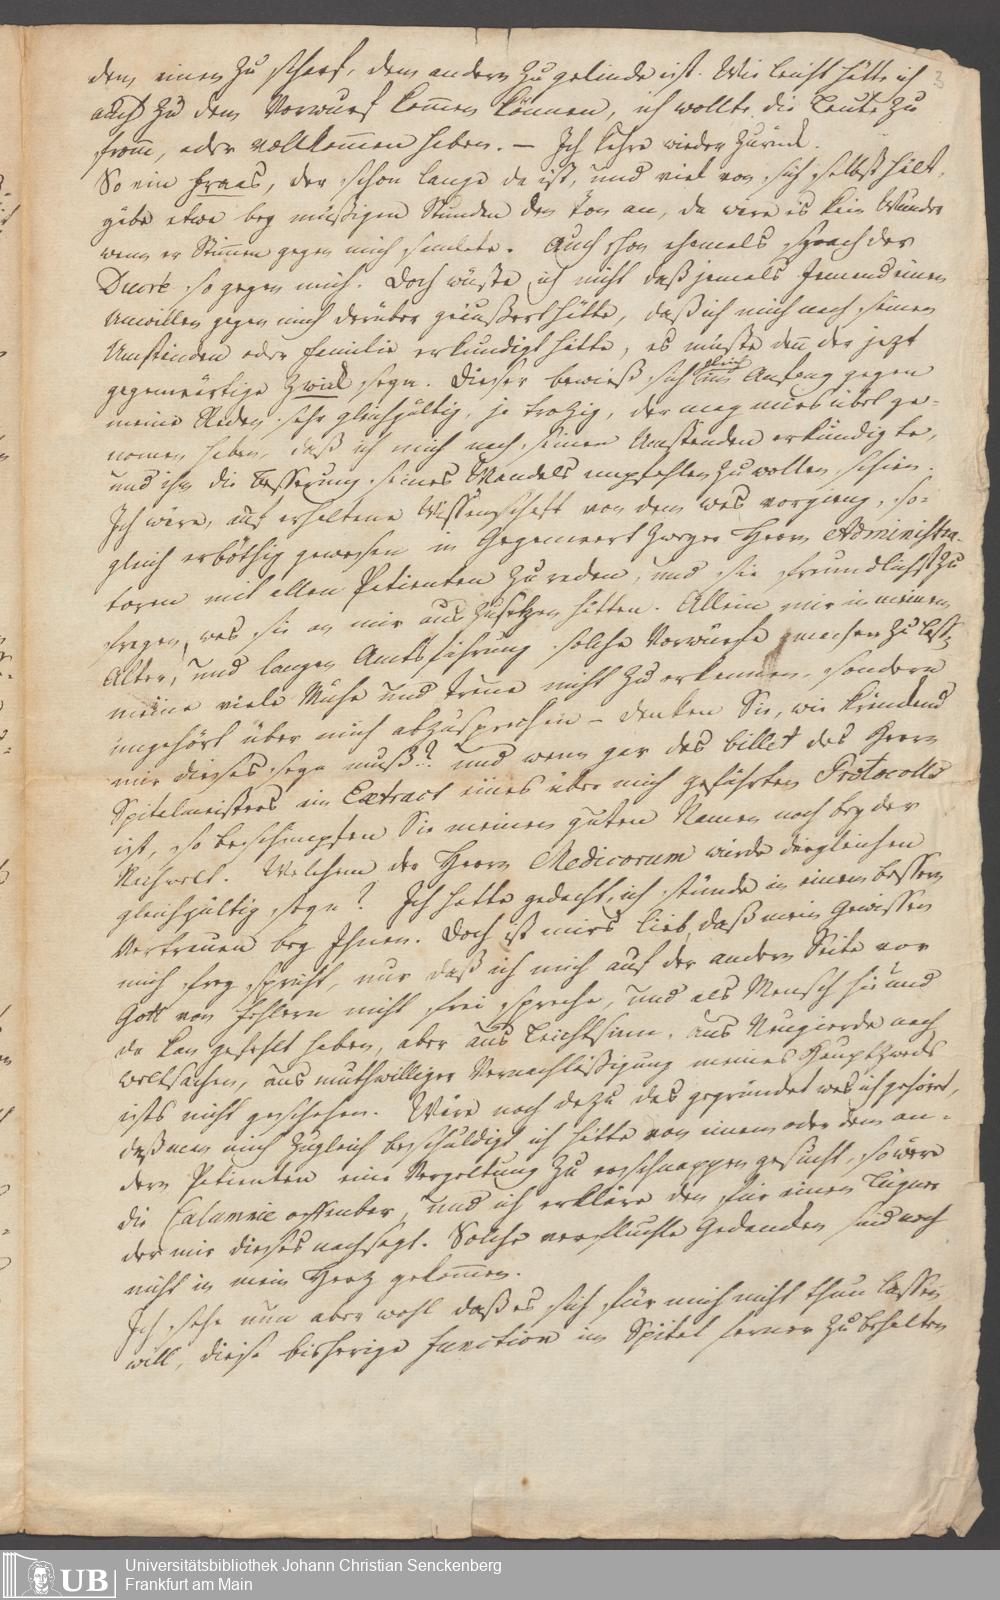 3
dem einen zu scharf, dem andern zu gelinde ist. Wie leicht hätte ich
auch zu dem Vorwurf kom̄en können, ich wollte die Leute zu
from̄, oder vollkom̄en haben. — Ich kehre wieder zurück.
So ein Fraas, der schon lange da ist, und viel von sich selbst hält,
gäbe etwa bey müßigen Stunden den Ton an, da wäre es kein Wunder
wenn er Stim̄en gegen mich samlete. Auch schon ehemals sprach der
Ducré so gegen mich. Doch wüste ich nicht daß jemals Jemand einen
Unwillen gegen mich darüber geäußert hätte, daß ich mich nach seinen
Umständen oder Familie erkundigt hätte, es müste den̄ der jezt
gegenwärtige Zwick seyn. Dieser bewieß sich gleich im Anfang gegen
meine Reden sehr gleichgültig, ja trozig, der mag mirs übel ge-
nomen haben, daß ich mich nach seinen Umständen erkundigte,
und ihm die Besserung seines Wandels empfehlen zu wollen schien.
Ich wäre, auf erhaltene Wissenschaft von dem was vorgieng, so-
gleich erböthig gewesen in Gegenwart zweyer Herrn Administra-
toren mit allen Patienten zu reden, und sie freundlichst zu
fragen, was sie an mir auszusetzen hätten. Allein mir in meinem
Alter, und langen Amtsführung solche Vorwürfe machen zu lassen
meine viele Mühe und Treue nicht zu erkennen, sondern
ungehört über mich abzusprechen — denken Sie, wie kränkend
mir dieses seyn muß? und wenn gar das billet des Herrn
Spitalmeisters ein Extract eines über mich geführten Protocolls
ist, so beschimpfen Sie meinen guten Namen noch bey der
Nachwelt. Welchem der Herrn Medicorum würde dergleichen
gleichgültig seyn? Ich hatte gedacht, ich stünde in einem bessern
Vertrauen bey Ihnen. Doch ist mirs lieb, daß mein Gewissen
mich frey spricht, nur daß ich mich auf der andern Seite vor
Gott von Fehlern nicht frei spreche, und als Mensch hie und
da kan gefehlt haben, aber aus Leichtsinn, aus Neugierde nach
Weltsachen, aus muthwilliger Vernachläßigung meines Hauptzwecks
ists nicht geschehen. Wäre noch dazu das gegründet was ich gehöret,
daß man mich zugleich beschuldigt ich hätte von einem oder dem an-
dern Patienten eine Vergeltung zu erschnappen gesucht, so wäre
die Calumnie offenbar, und ich erkläre den für einen Lügner
der mir dieses nachsagt. Solche verfluchte Gedancken sind noch
nicht in mein Herz gekom̄en.
Ich sehe nun aber wohl daß es sich für mich nicht thun lassen
will, diese bisherige Function im Spital ferner zu behalten
UB
Universitätsbibliothek Johann Christian Senckenberg
Frankfurt am Main